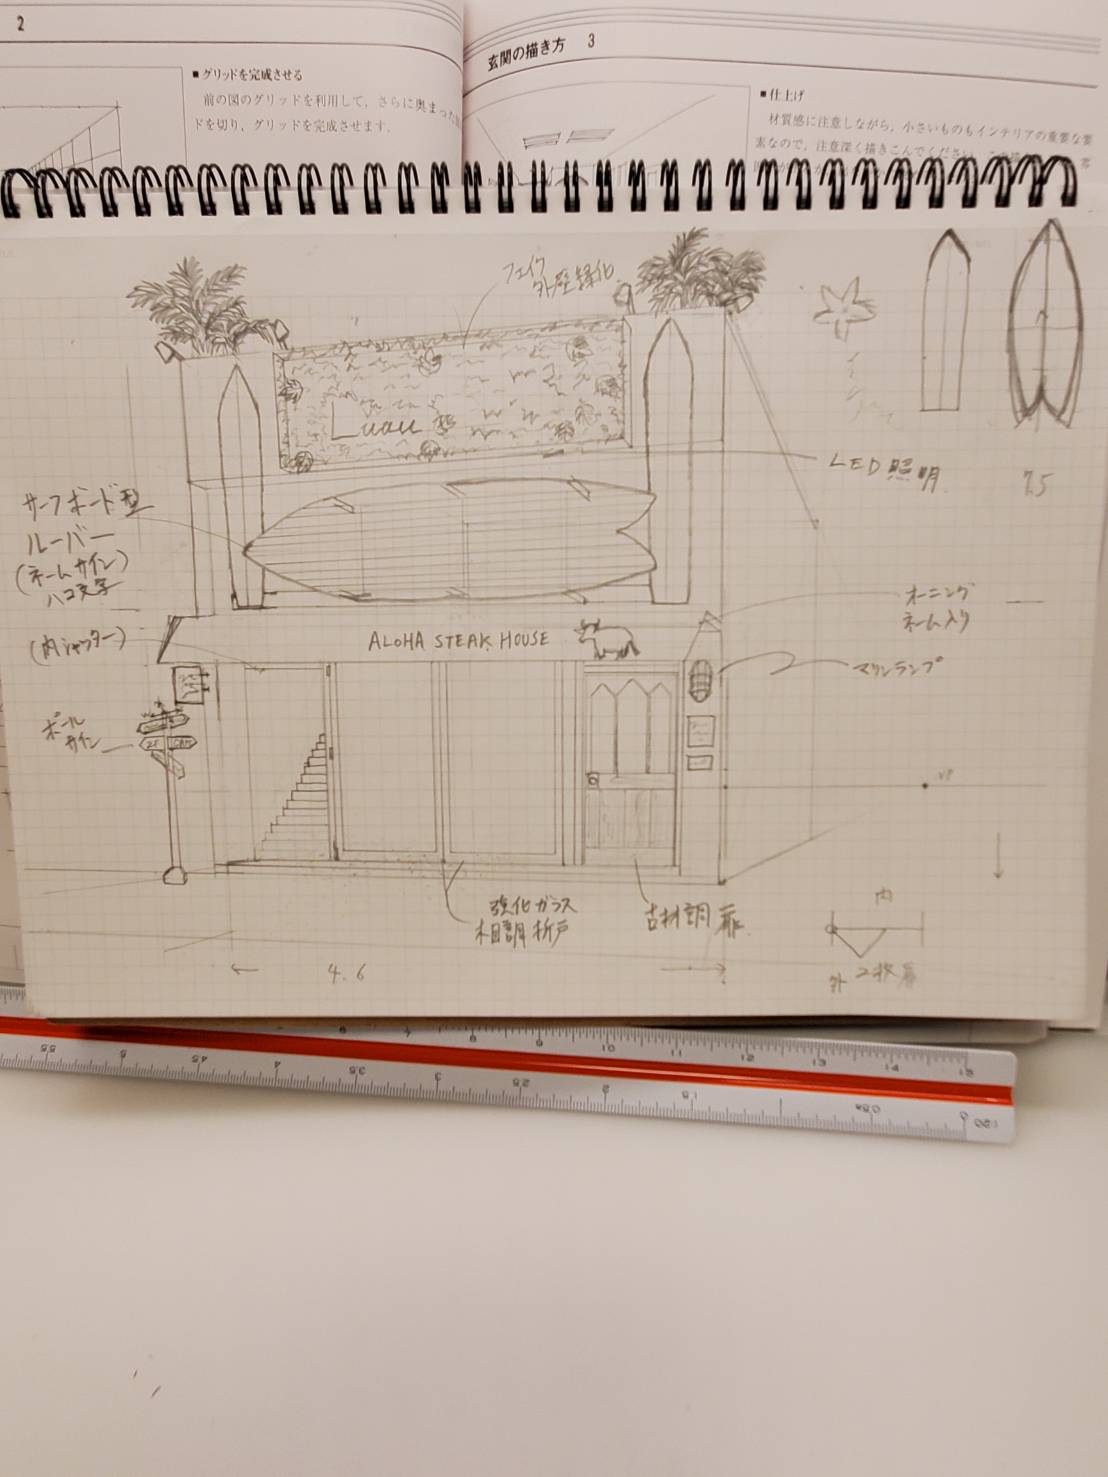 2
■グリッドを完成させる
前の図のグリッドを利用して，さらに奥まった
ドを切り，グリッドを完成させます．
玄関の描き方 3
■仕上げ
材質感に注意しながら，小さいものもインテリアの重要な要
素なので，注意深く描きこんでください．
フェイク
外壁緑化
Luau
LED照明
7.5
サーフボード型
ルーバー
(ネームサイン)
ハコ文字
(内シャッター)
オーニング
ネーム入り
ALOHA STEAK HOUSE
マリンランプ
ポール
サイン
VP
強化ガラス
木目調折戸
古材調扉
内
外 2枚扉
4.6